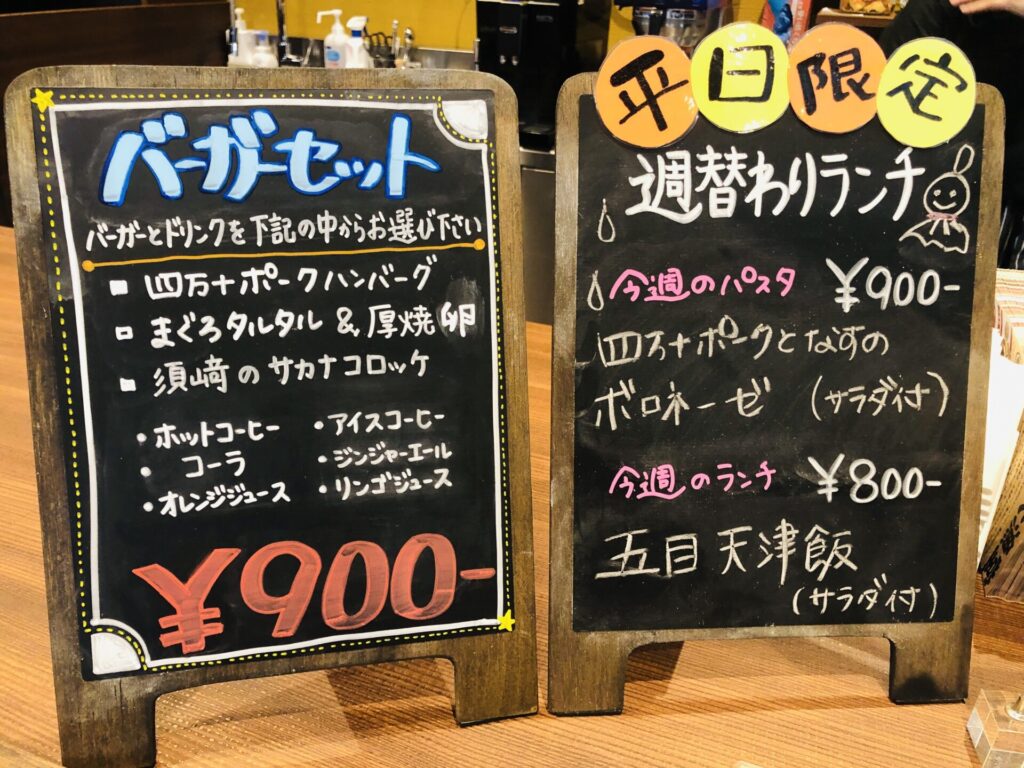 バーガーセット
バーガーとドリンクを下記の中からお選び下さい
四万十ポークハンバーグ
まぐろタルタル & 厚焼卵
須﨑のサカナコロッケ
・ホットコーヒー ・アイスコーヒー
・コーラ ・ジンジャーエール
・オレンジジュース ・リンゴジュース
¥900-
平日限定
週替わりランチ
今週のパスタ ¥900-
四万十ポークとなすの
ボロネーゼ (サラダ付)
今週のランチ ¥800-
五目天津飯
(サラダ付)